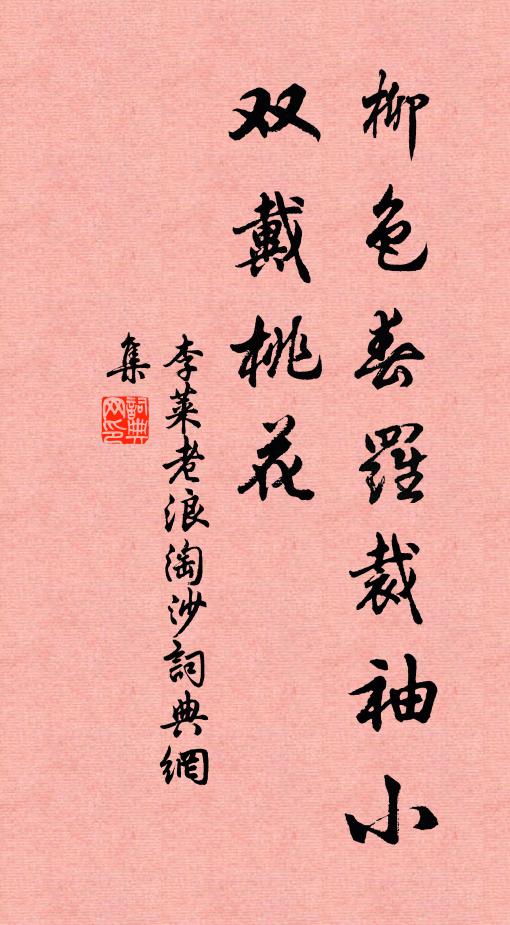 柳色春羅裁袖小
双戴桃花
李萊老浪淘沙詞典網
集
詞典
网印